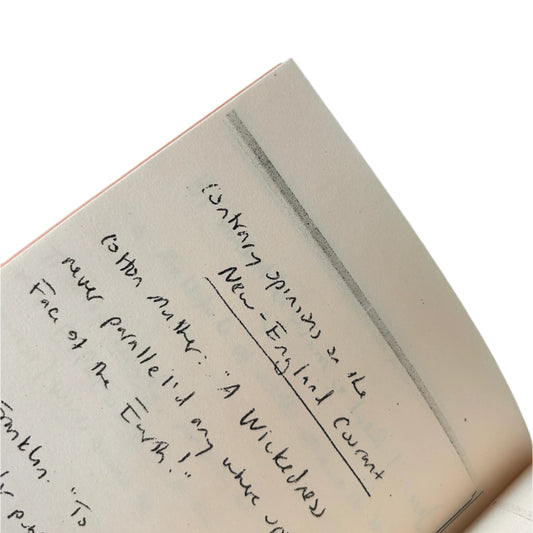 Contrary opinions on the
New-England Courant
Cotton Mather: "A Wickedness
never parallel'd any where up
Face of the Earth!"
Franklin: "To